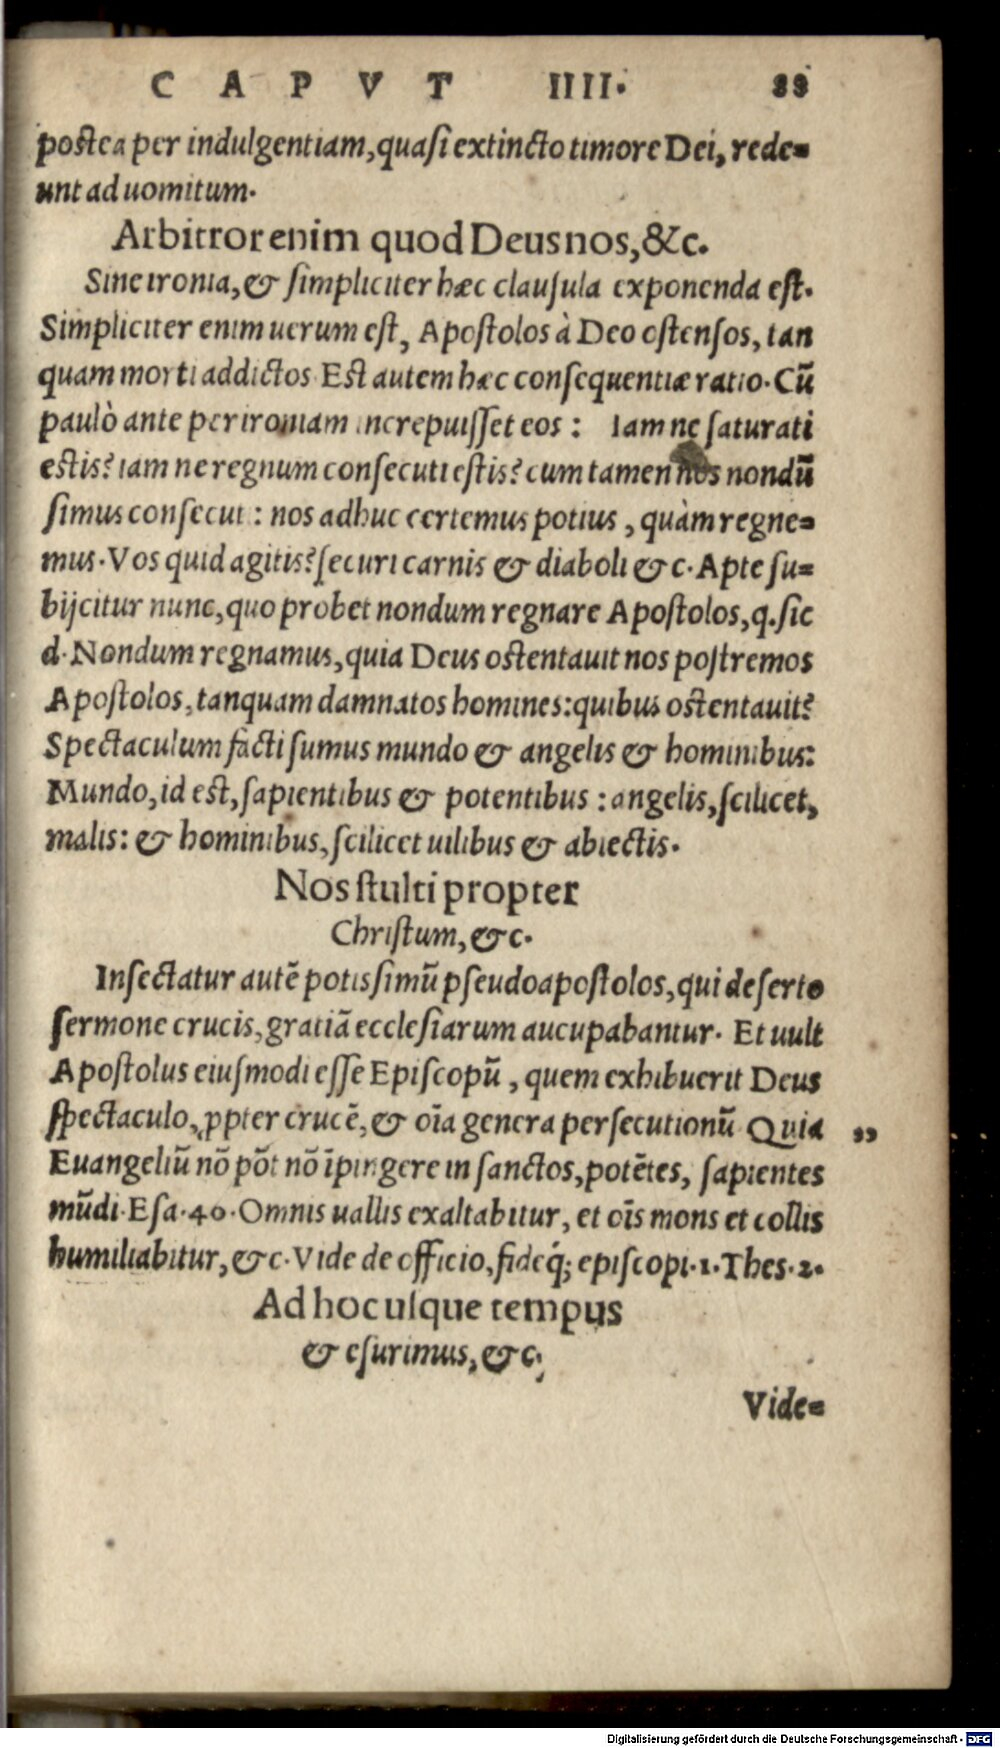 CAPVT IIII. 88
postea per indulgentiam, quasi extincto timore Dei, rede=
unt ad uomitum.
Arbitror enim quod Deus nos, &c.
Sine ironia, & simpliciter hæc clausula exponenda est.
Simpliciter enim uerum est, Apostolos à Deo ostensos, tan
quam morti addictos Est autem hæc consequentiæ ratio. Cū
paulò ante per ironiam increpuisset eos : Iam ne saturati
estis? iam ne regnum consecuti estis? cum tamen nos nondū
simus consecuti : nos adhuc certemus potius, quàm regne=
mus. Vos quid agitis? securi carnis & diaboli &c. Apte su=
bijcitur nunc, quo probet nondum regnare Apostolos, q. sic
d. Nondum regnamus, quia Deus ostentauit nos postremos
Apostolos, tanquam damnatos homines: quibus ostentauit?
Spectaculum facti sumus mundo & angelis & hominibus:
Mundo, id est, sapientibus & potentibus : angelis, scilicet,
malis: & hominibus, scilicet uilibus & abiectis.
Nos stulti propter
Christum, &c.
Insectatur autē potissimū pseudoapostolos, qui deserto
sermone crucis, gratiā ecclesiarum aucupabantur. Et uult
Apostolus eiusmodi esse Episcopū, quem exhibuerit Deus
spectaculo, ꝓpter crucē, & oīa genera persecutionū Quia „
Euangeliū nō pōt nō īpingere in sanctos, potētes, sapientes
mūdi. Esa. 40. Omnis uallis exaltabitur, et oīs mons et collis
humiliabitur, &c. Vide de officio, fideq́; episcopi. 1. Thes. 2.
Ad hoc usque tempus
& esurimus, &c.
Vide=
Digitalisierung gefördert durch die Deutsche Forschungsgemeinschaft - DFG